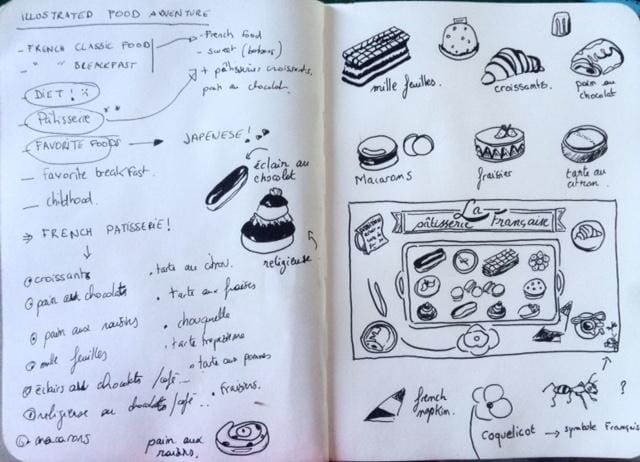 ILLUSTRATED FOOD ADVENTURE
- FRENCH CLASSIC FOOD
- " " BREAKFAST
- French food
- sweet (bonbons)
+ pâtisseries croissants,
pain au chocolat.
- DIET!
- Pâtisserie **
- FAVORITE FOODS → JAPENESE!
- favorite breakfast.
- childhood.
⇒ FRENCH PATISSERIE!
croissants
pain aux chocolats
pain aux raisins
mille feuilles
éclairs aux chocolats/café
religieuse au chocolats/café
macarons
. tarte au citron.
. tarte aux fraises
. chouquette
. tarte tropezienne
. tarte aux pommes
. fraisiers.
éclair au
chocolat
religieuse
pain aux
raisins.
mille feuilles.
croissants.
pain au
chocolat
Macarons
fraisier
tarte au
citron.
La
pâtisserie Française
french
napkin.
?
Coquelicot → symbole Français